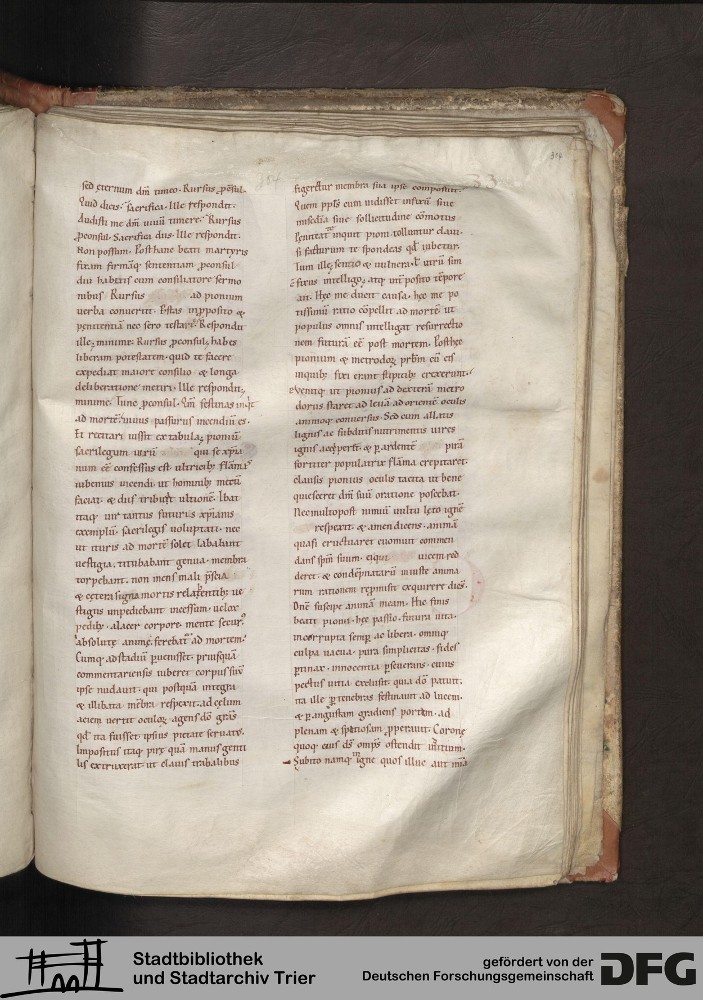 sed eternum dm̄ timeo. Rursus ꝓcōsul.
Quid dicis. sacrifica. Ille respondit.
Audisti me dm̄ uiuū timere. Rursus
ꝓconsul. Sacrifica diis. Ille respondit.
Non possum. Post hanc beati martyris
fixam firmāq; sententiam ꝓconsul
diu habitis cum consiliatore sermo
nibus. Rursus ad pionium
uerba conuertit. Pstas in ꝓposito &
penitentiā nec sero testaris. Respondit
ille; minime. Rursus ꝓconsul; habes
liberam potestatem. quid te facere
expediat maiore consilio & longa
deliberatione metiri. Ille respondit;
minime. Tunc ꝓconsul. Qm̄ festinas inqt
ad mortē uiuus passurus incendiū es.
Et recitari iussit ex tabula; pioniū
sacrilegum uirū qui se xp̄ia
num eē confessus est ultricib; flāmas
iubemus incendi. ut hominib; metū
faciat. & diis tribuat ultionē. Ibat
itaq; uir tantus futurus xp̄ianis
exemplū. sacrilegis uoluptati. nec
ut ituris ad mortē solet lababant
uestigia. titubabant genua. membra
torpebant. non mens mali p̄scia
& cetera signa mortis relaxentib; ue
stigiis impediebant incessum. uelox
pedib; alacer corpore. mente securꝰ
absolutę animę. ferebat̄ ad mortem.
Cumq; ad stadiū puenisset. priusquā
commentariensis iuberet corpus suū
ipse nudauit. qui postquā integra
& illibata mēbra respexit. ad cęlum
aciem uertit oculoꝝ. agens dō grās
qd̄ ita fuisset ipsius pietate seruatꝰ.
Impositus itaq; pirę quā manus genti
lis extruxerat. ut clauis trabalibus
figerētur membra sua ipse composuit.
Quem pplꝰs cum uidisset infixū siue
misedia siue sollicitudine cōmotus
Penitat inquit pioni tolluntur claui.
si facturum te spondeas qd̄ iubetur.
Ad ille; sentio & uulnera. & utrū sim
fixus intelligo; atq; int̄posito tēpore
ait. Hęc me ducit causa. hęc me po
tissimū ratio cōpellit ad mortē. ut
populus omnis intelligat resurrectio
nem futurā eē post mortem. Post hęc
pionium & metrodoꝝ prb̄m cū eis
in quib; fixi erant stipitib; erexerunt.
Euenitq; ut pionius ad dexterā. metro
dorus staret ad leuā. ad orientē oculis
animoq; conuersus. Sed cum allatis
lignis ac subditis nutrimentis uires
ignis accepisset. & p ardentē pirā
fortiter populatrix flāma crepitaret.
clausis pionius oculis tacita ut bene
quiesceret dm̄ suū oratione poscebat.
Nec multo post nimiū uultu lęto ignē
respexit. & amen dicens. animā
quasi eructuaret euomuit. commen
dans spm̄ suum. ei qui uicem red
deret. & condēpnatarū iniuste anima
rum rationem repmisit exquirere dicēs.
Dnē suscipe animā meam. Hic finis
beati pionii. hęc passio. futura uita.
incorrupta semp. ac libera. omniq;
culpa uacua. pura simplicitas. fides
ptinax. innocentia pseuerans. cuius
pectus uitia exclusit quia dō patuit.
ita ille p tenebras festinauit ad lucem.
& p angustam gradiens portam. ad
plenam & spatiosam pperauit. Coronę
quoq; eius ds̄ omps̄ ostendit uirtutum.
Subito namq; igne quos illuc aut mia
334
Stadtbibliothek
und Stadtarchiv Trier
gefördert von der
Deutschen Forschungsgemeinschaft
DFG